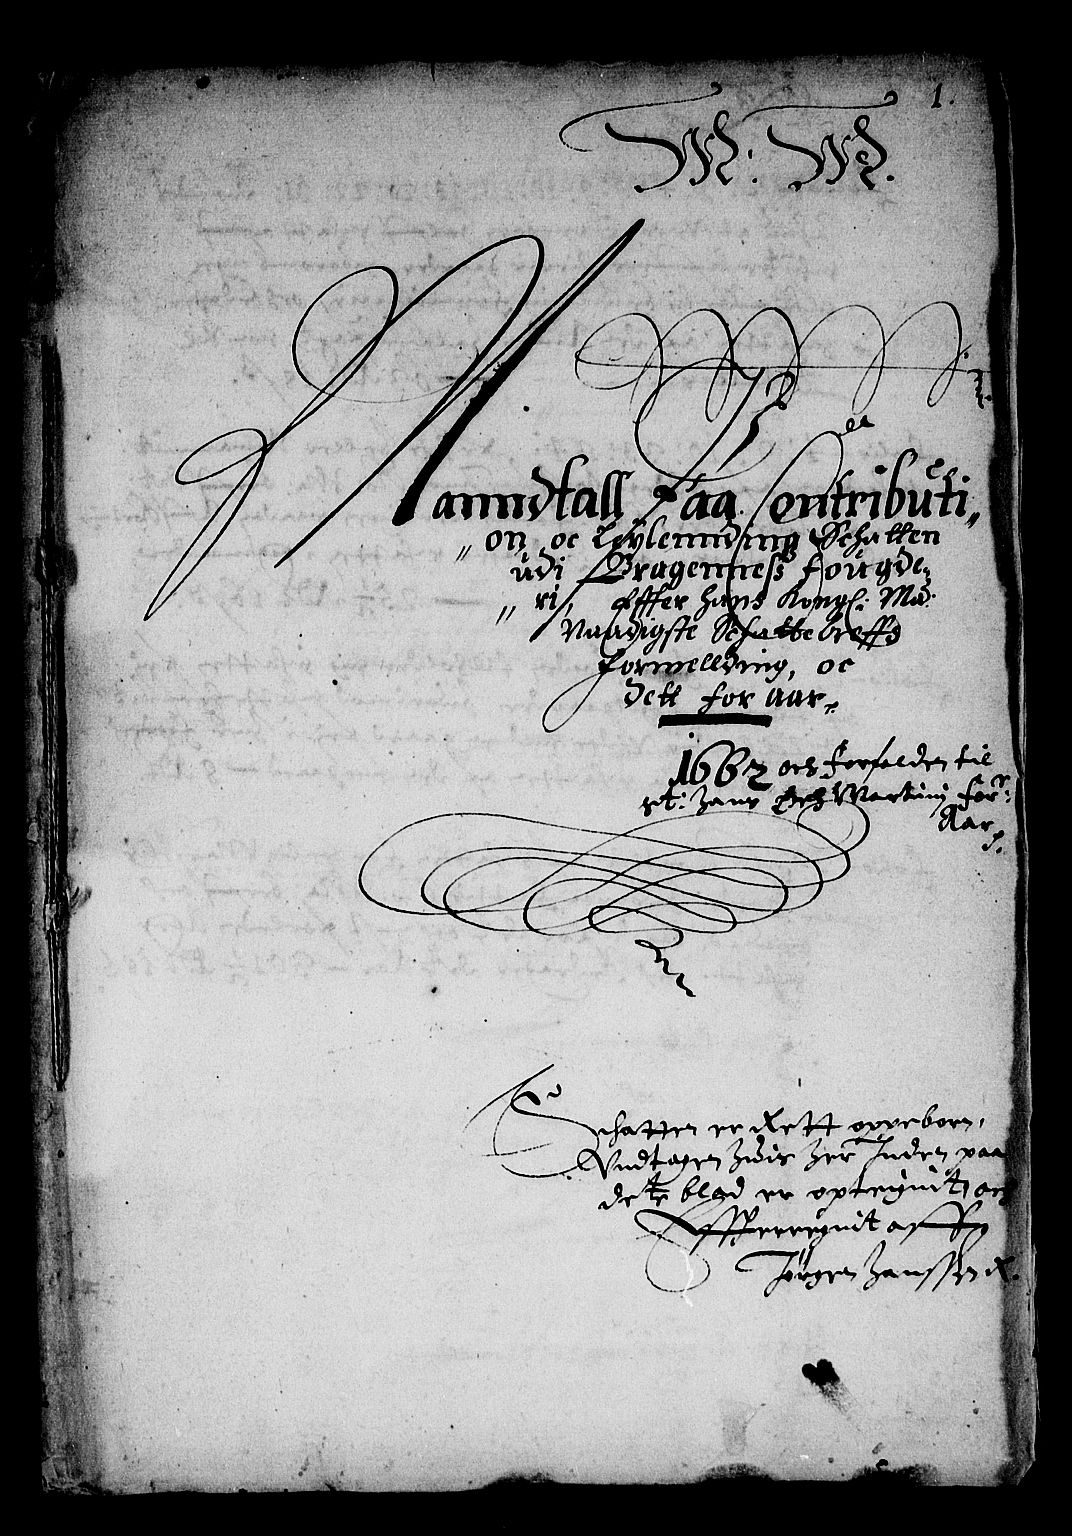 1.
M: M.
Manndtall Paa Contributi„
„on oc Leylennding Schatten
udi Bragernneß fougde„
„ri, Effter hans Kongl: Ma:
Naadigste Schattebreffs
formelding, oc
dett for aar„
1662 och forfalden til
St: Hans och Martini for:
Aar
Schatten er Rett opreborn,
Undtagen huis her Inden paa
dete blad er optegnit, och
Effterregnit aff
Jørgen Hanssen